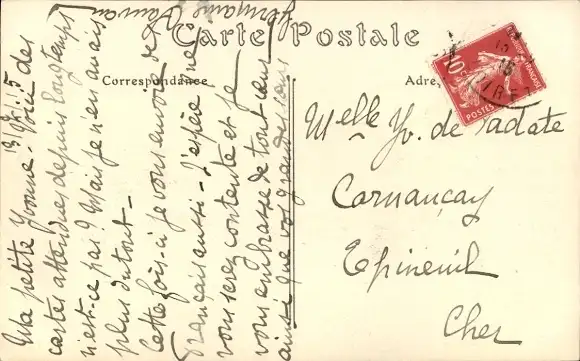 Carte Postale
Correspondance
Ma petite Yvonne. Voici des
cartes attendues depuis longtemps
n'est-ce pas? Mais je n'en avais
plus du tout –
Cette fois-ci je vous envoie de
français aussi – J'espère que
vous serez contente et je
vous embrasse de tout cœur
ainsi que vos grandes sœurs
Germaine
Melle Yv. de
Cornançay
Epineuil
Cher
10c
POSTES